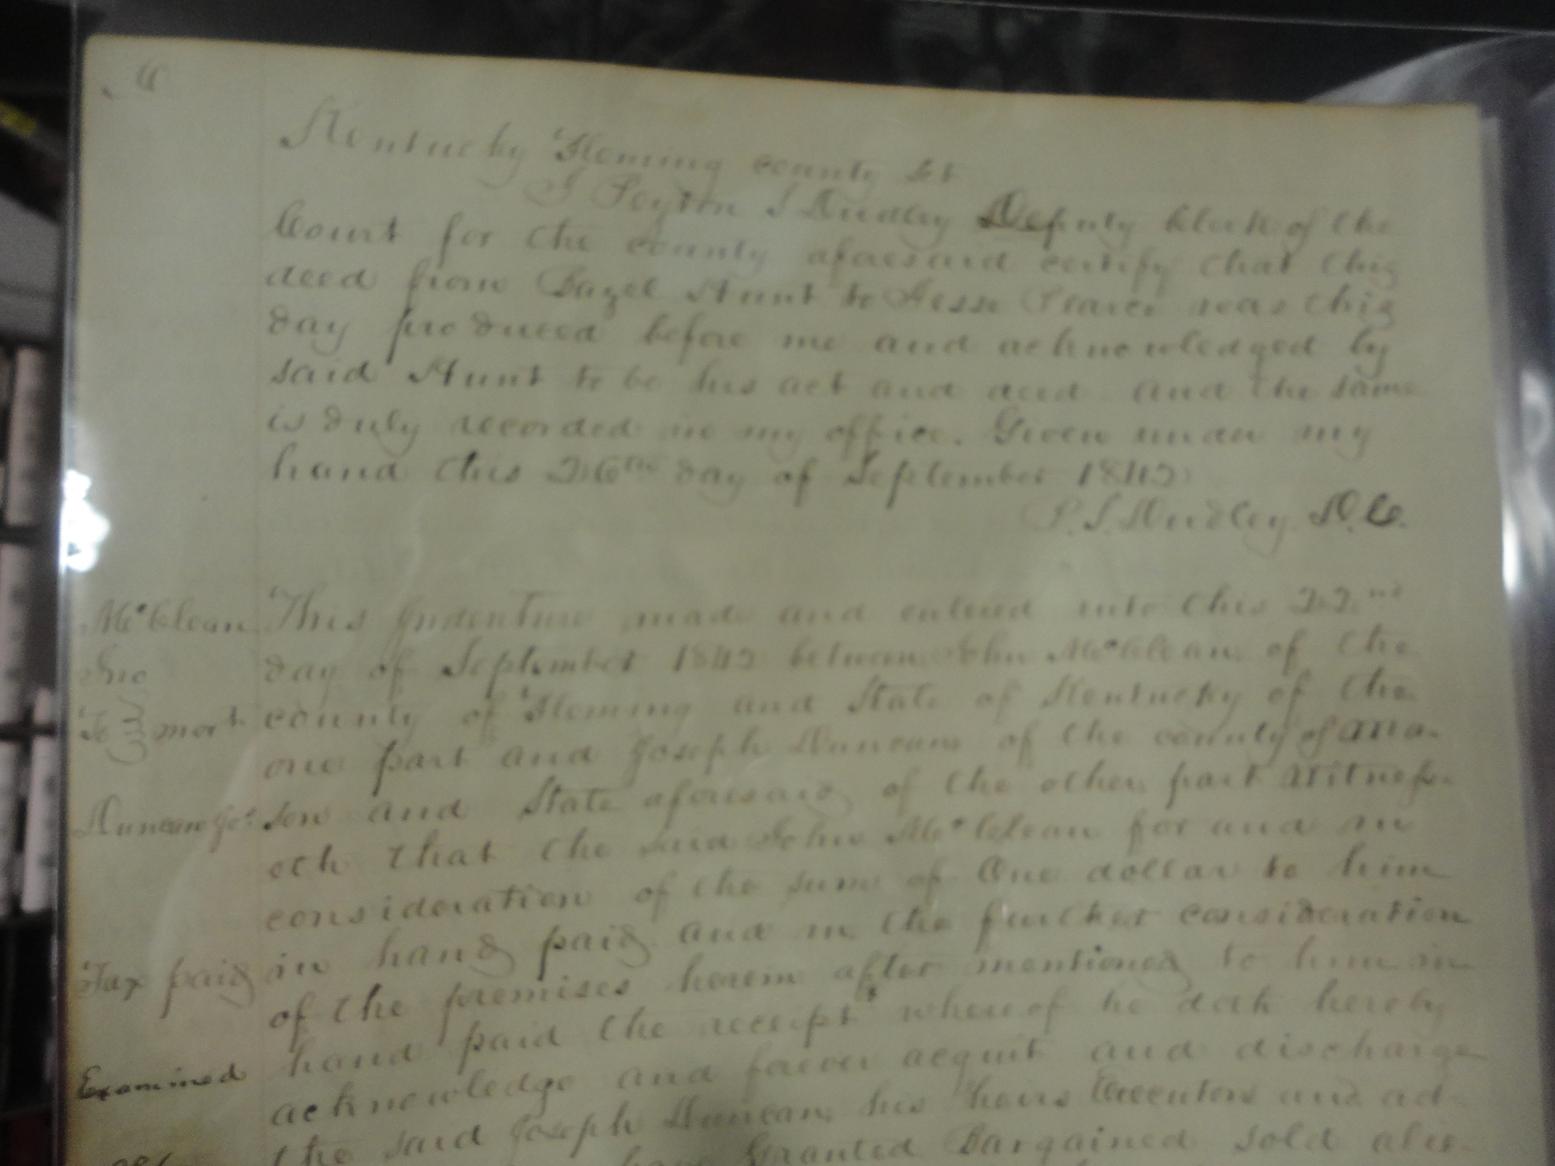 Kentucky Fleming county Sct
I Peyton S Dudley Deputy clerk of the
Court for the county aforesaid certify that this
deed from Bazel Hunt to Jesse Pearce was this
day produced before me and acknowledged by
said Hunt to be his act and deed and the same
is duly recorded in my office. Given under my
hand this 26th day of September 1842
P. S. Dudley D.C.
McClean
Jno
To mort
Duncan Jos
Tax paid
Examined
This Indenture made and entered into this 22nd
day of September 1842 between John McClean of the
county of Fleming and State of Kentucky of the
one part and Joseph Duncan of the county of Ma-
son and State aforesaid of the other part Witness-
eth that the said John McClean for and in
consideration of the sum of One dollar to him
in hand paid and in the further consideration
of the premises herein after mentioned to him in
hand paid the receipt whereof he doth hereby
acknowledge and forever acquit and discharge
the said Joseph Duncan his heirs Executors and ad-
have Granted Bargained sold alie-